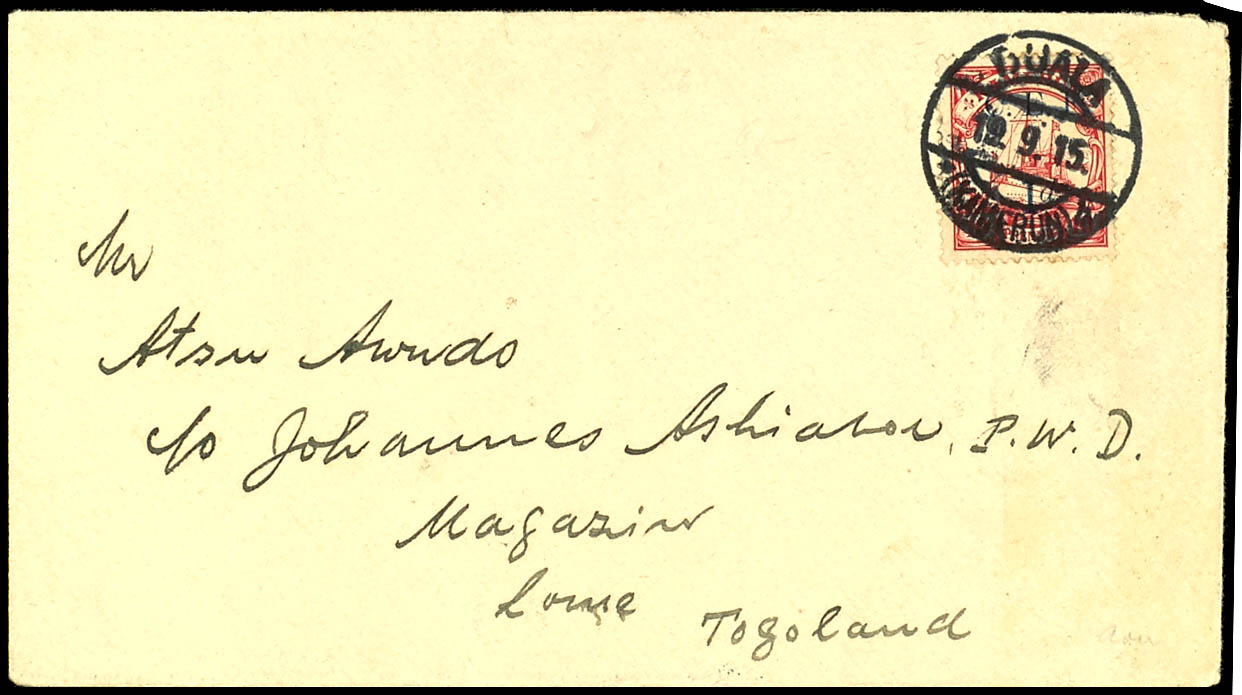 DUALA
C. E. F.
19. 9. 15.
1d
(KAMERUN)
Mr
Atsu Awudo
c/o Johannes Ashiabor, P.W.D.
Magazin
Lome Togoland